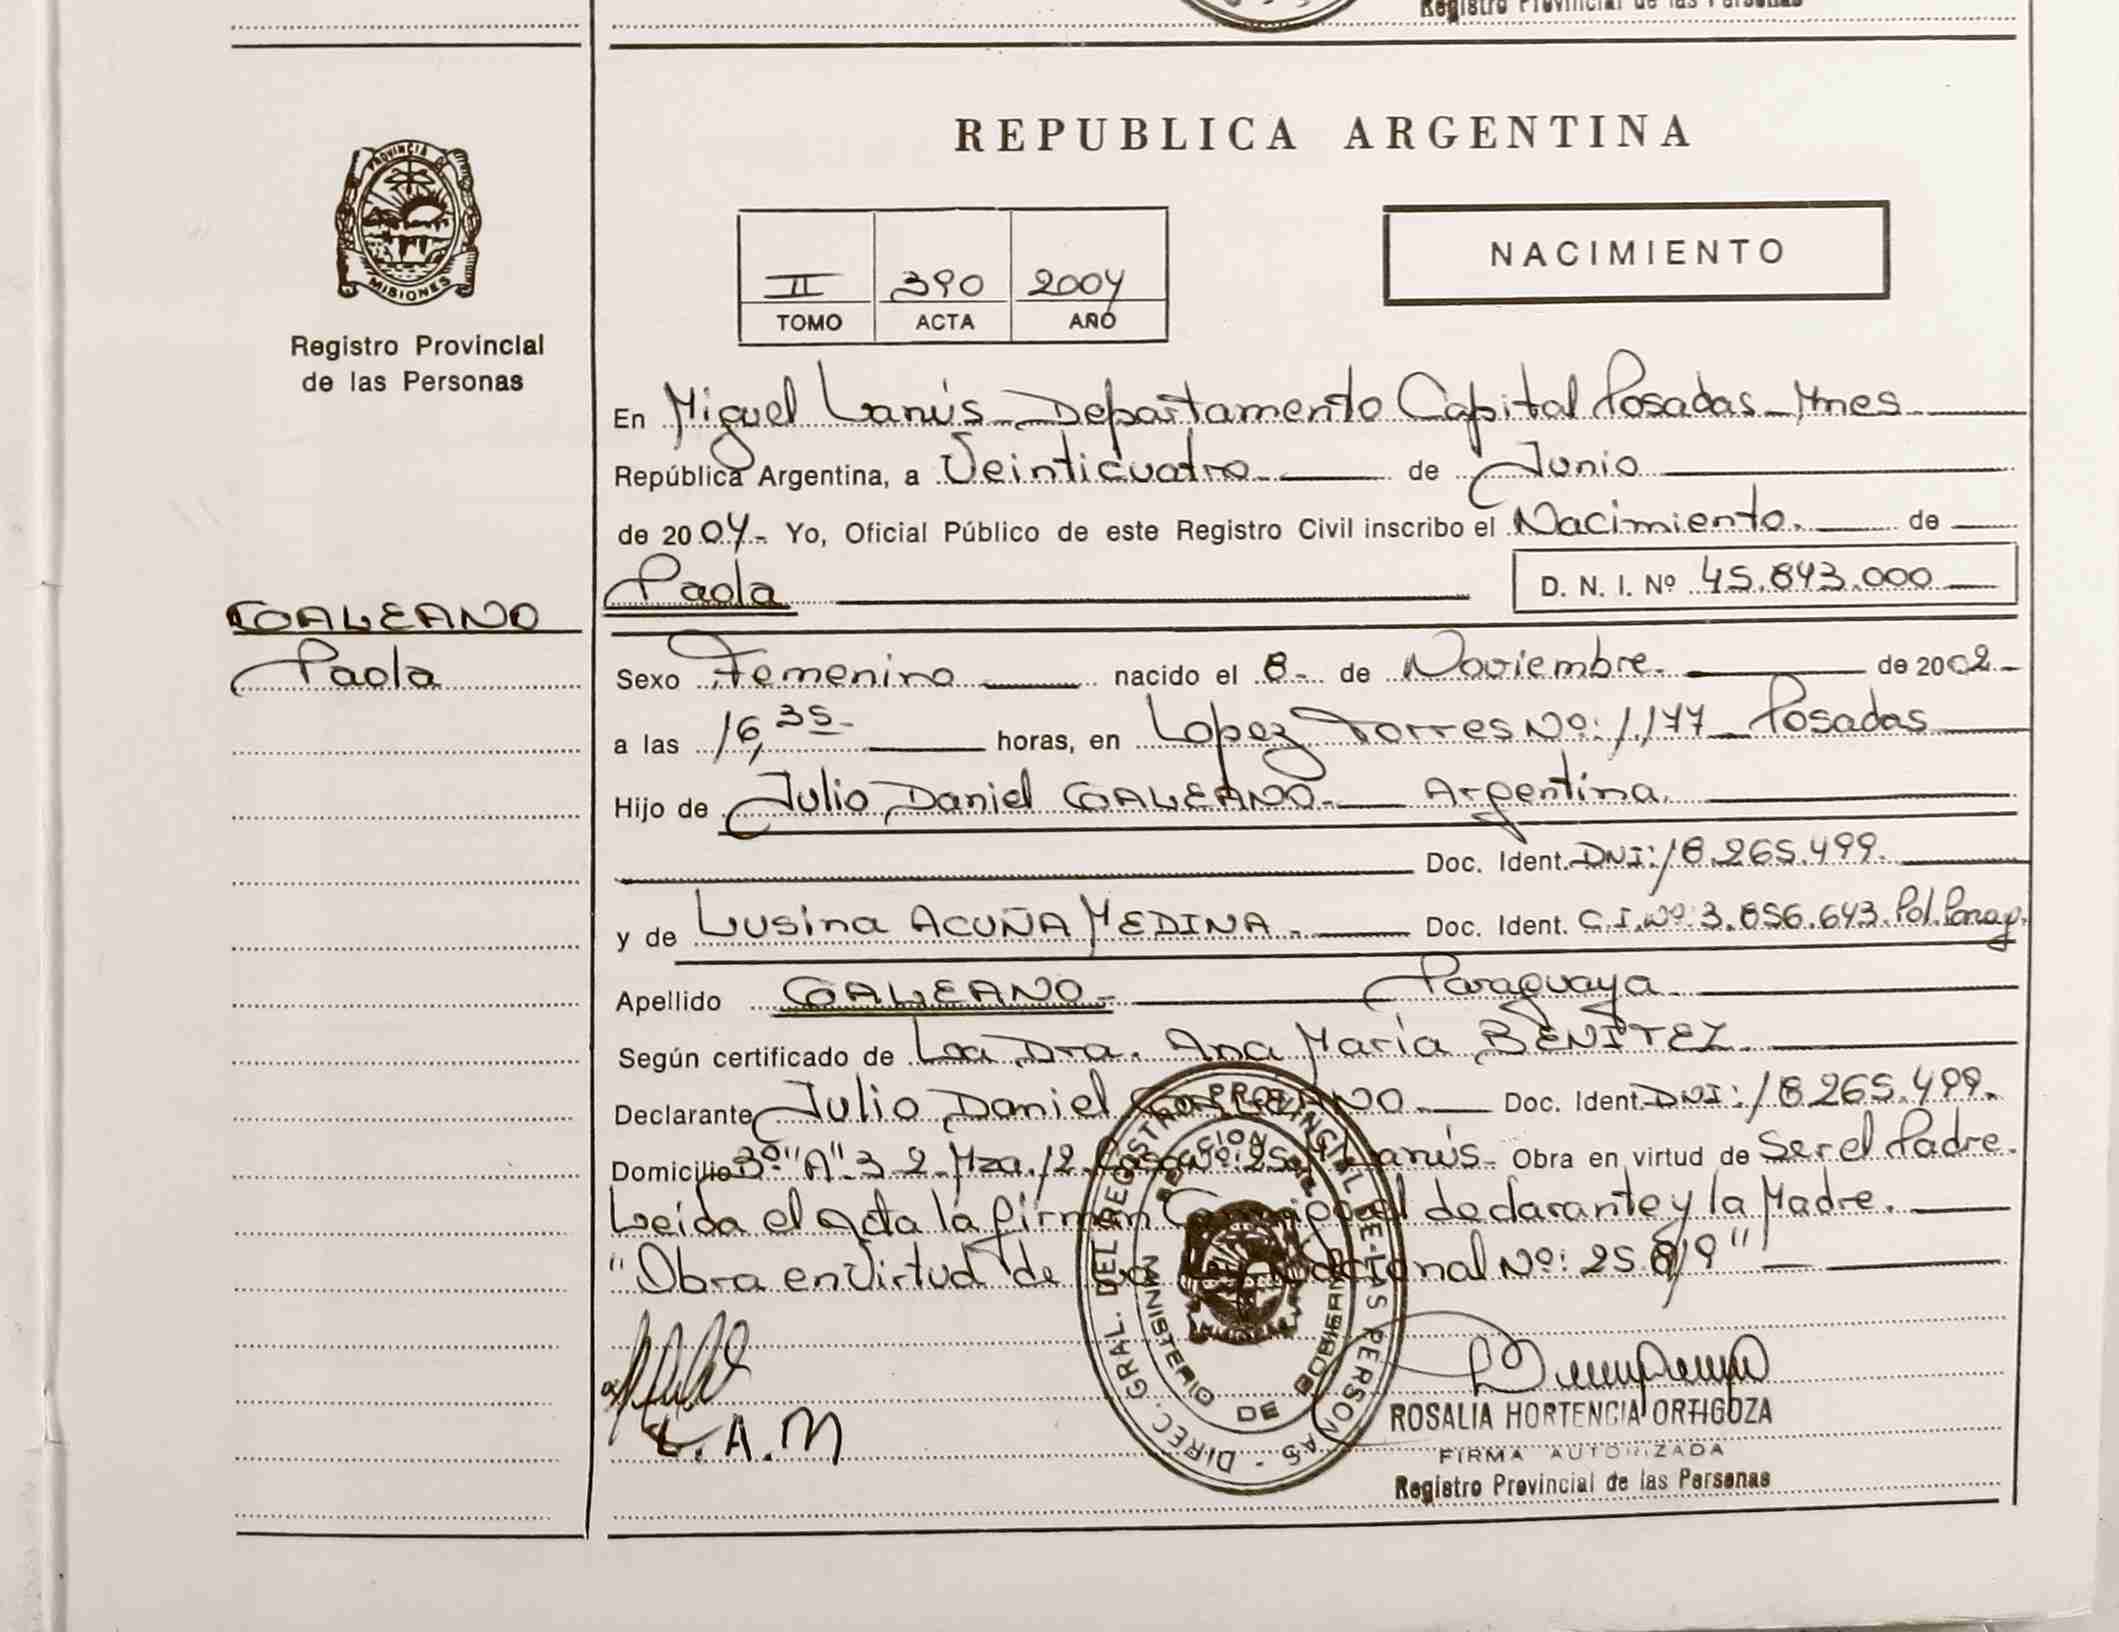 Registro Provincial de las Personas
REPUBLICA ARGENTINA
PROVINCIA DE
MISIONES
Registro Provincial
de las Personas
NACIMIENTO
II 390 2004
TOMO ACTA AÑO
En Miguel Lanús Departamento Capital Posadas Mnes
República Argentina, a Veinticuatro de Junio
de 2004 Yo, Oficial Público de este Registro Civil inscribo el Nacimiento. de
Paola D. N. I. Nº 45.843.000
GALEANO
Paola
Sexo Femenino nacido el 8 de Noviembre. de 2002
a las 16,35 horas, en Lopez Torres Nº: 1.177 Posadas
Hijo de Julio Daniel GALEANO Argentina.
Doc. Ident. DNI: 18.265.499.
y de Lusina ACUÑA MEDINA. Doc. Ident. C.I.Nº: 3.856.643. Pol. Parag.
Apellido GALEANO Paraguaya
Según certificado de Loa Dra. Ana María BENITEZ
Declarante Julio Daniel GALEANO Doc. Ident. DNI: 18.265.499.
Domicilio 3º "A" 3 2 Mza. 12 Lanús Obra en virtud de Ser el Padre.
Leida el acta la firman el declarante y la Madre.
"Obra en Virtud de Nacional Nº: 25.819"
DIREC. GRAL. DEL REGISTRO PROVINCIAL DE LAS PERSONAS
MINISTERIO DE GOBIERNO
L.A.M
ROSALIA HORTENCIA ORTIGOZA
FIRMA AUTORIZADA
Registro Provincial de las Personas